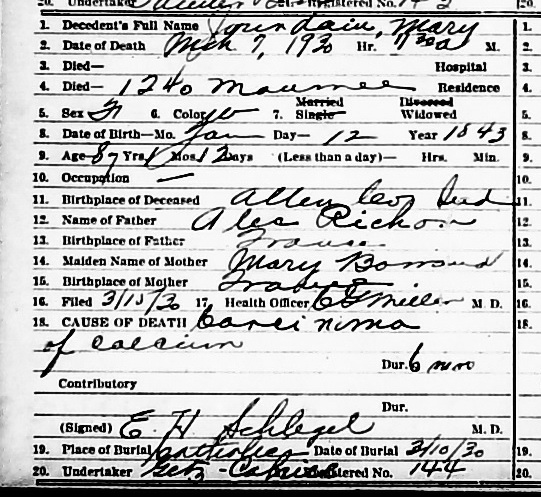 20. Undertaker Registered No. 143
1. Decedent's Full Name Jourdain, Mary
2. Date of Death Mch 7, 1930 Hr. 7 30 a M.
3. Died— Hospital
4. Died— 1240 Maumee Residence
5. Sex F 6. Color W 7. Married Single Divorced Widowed
8. Date of Birth—Mo. Jan Day— 12 Year 1843
9. Age 87 Yrs. 1 Mos. 12 Days (Less than a day)— Hrs. Min.
10. Occupation —
11. Birthplace of Deceased Allen Co Ind
12. Name of Father Alec Richon
13. Birthplace of Father France
14. Maiden Name of Mother Mary
15. Birthplace of Mother France
16. Filed 3/10/30 17. Health Officer Miller M. D.
18. CAUSE OF DEATH Carcinoma
of
Dur. 6 mo
Contributory
Dur.
(Signed) E H Schlegel M. D.
19. Place of Burial Catholic Date of Burial 3/10/30
20. Undertaker Getz - Registered No. 144